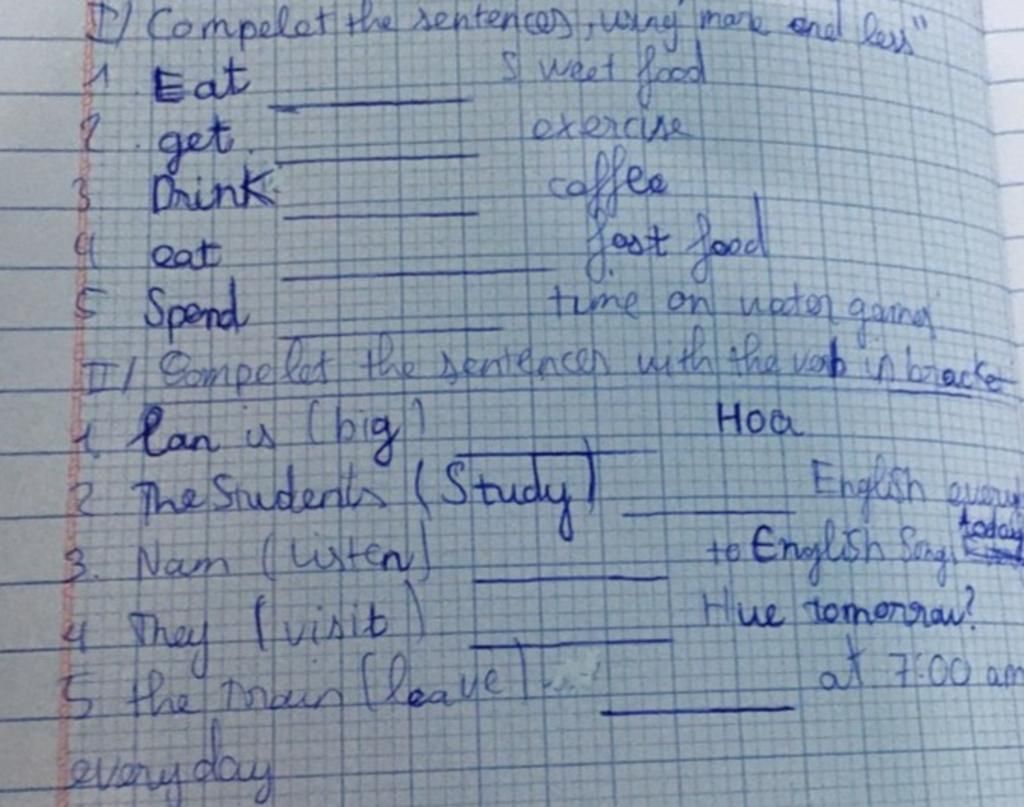 I) Compelet the sentences, using more and less"
1 Eat ______ Sweet food
2. get ______ exercise
3 Drink ______ coffee
4 eat ______ fast food
5 Spend ______ time on games
II/ Compelet the sentences with the verb in bracket
1 Lan is (big) ______ Hoa
2 The Students (Study) ______ English every
3. Nam (listen) ______ to English Song, today
4 They (visit) ______ Hue tomorrow?
5 the (leave) ______ at 7:00 am
everyday